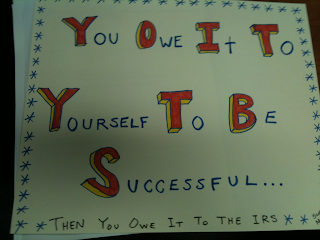 You Owe It To
Yourself To Be
Successful...
Then You Owe It To The IRS